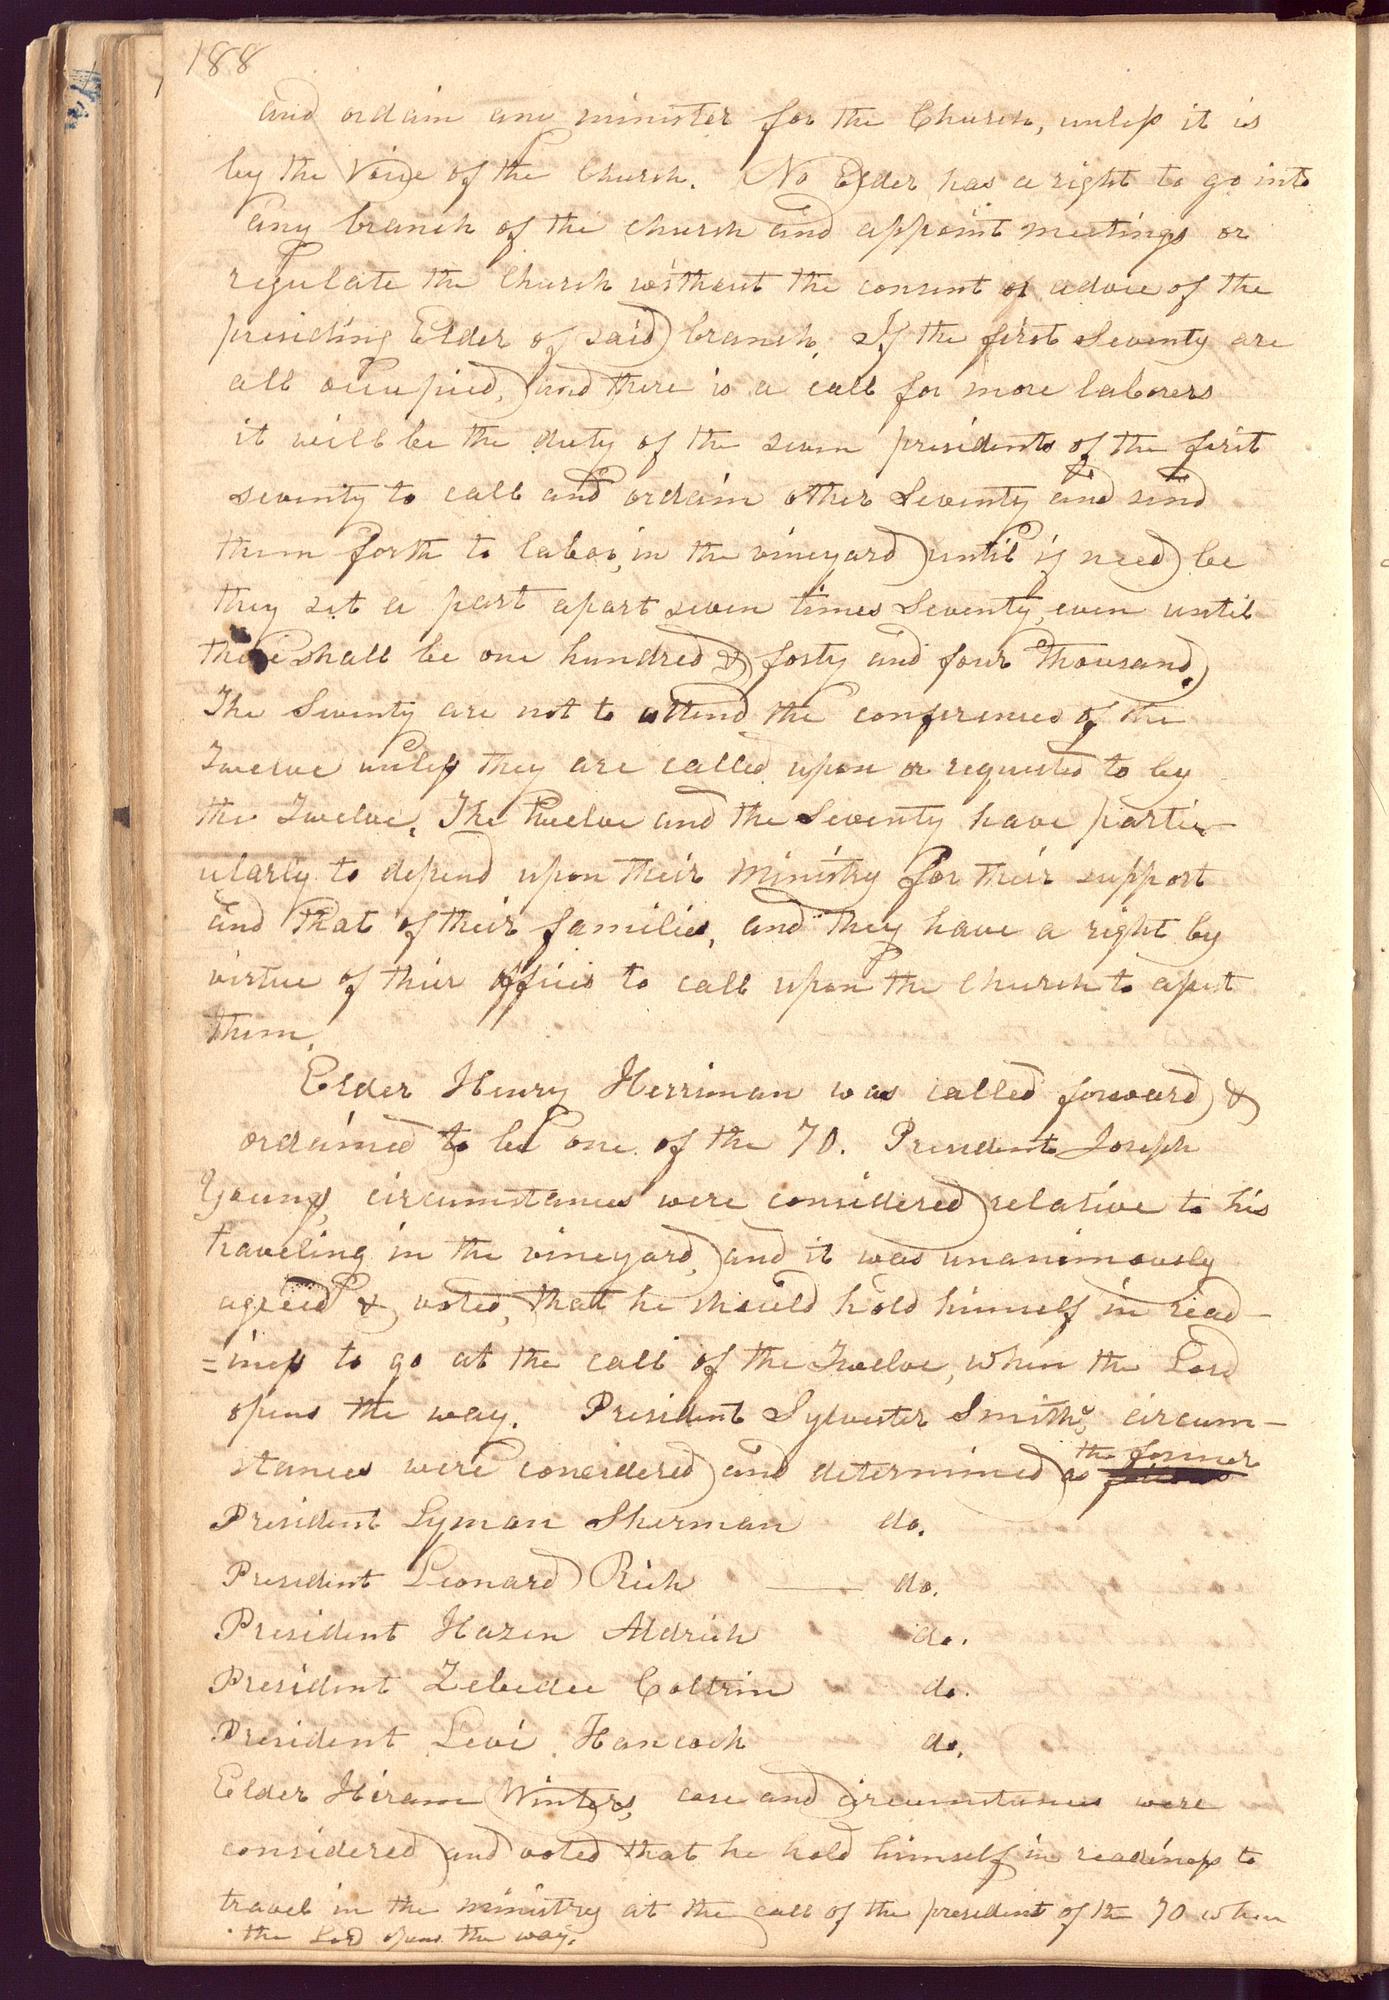 188
and ordain any minister for the Church, unless it is
by the Voice of the Church. No Elder has a right to go into
any branch of the church and appoint meetings or
regulate the Church without the consent or advice of the
presiding Elder of said branch. If the first Seventy are
all occupied, and there is a call for more laborers
it will be the duty of the seven presidents of the first
seventy to call and ordain other Seventy and send
them forth to labor, in the vineyard until if need be
they set a part apart seven times Seventy, even until
there shall be one hundred & forty and four Thousand.
The Seventy are not to attend the conferences of the
Twelve unless they are called upon or requested to by
the Twelve. The twelve and the Seventy have partic-
ularly to depend upon their Ministry for their support
and that of their families, and they have a right by
virtue of thier offices to call upon the Church to assist
them.
Elder Henry Herriman was called forward &
ordained to be one of the 70. President Joseph
Youngs, circumstances were considered relative to his
traveling in the vineyard, and it was unanimously
agreed & voted, that he should hold himself in read-
=iness to go at the call of the Twelve, when the Lord
opens the way. President Sylvester Smiths, circum-
stances were considered and determined as the former
President Lyman Sherman do.
President Leonard Rich —— do.
President Hazen Aldrich do.
President Zebedee Coltrin do.
President Levi Hancock do.
Elder Hiram Winters, case and circumstances were
considered and voted that he hold himself in readiness to
travel in the ministry at the call of the president of the 70 when
the Lord opens the way.